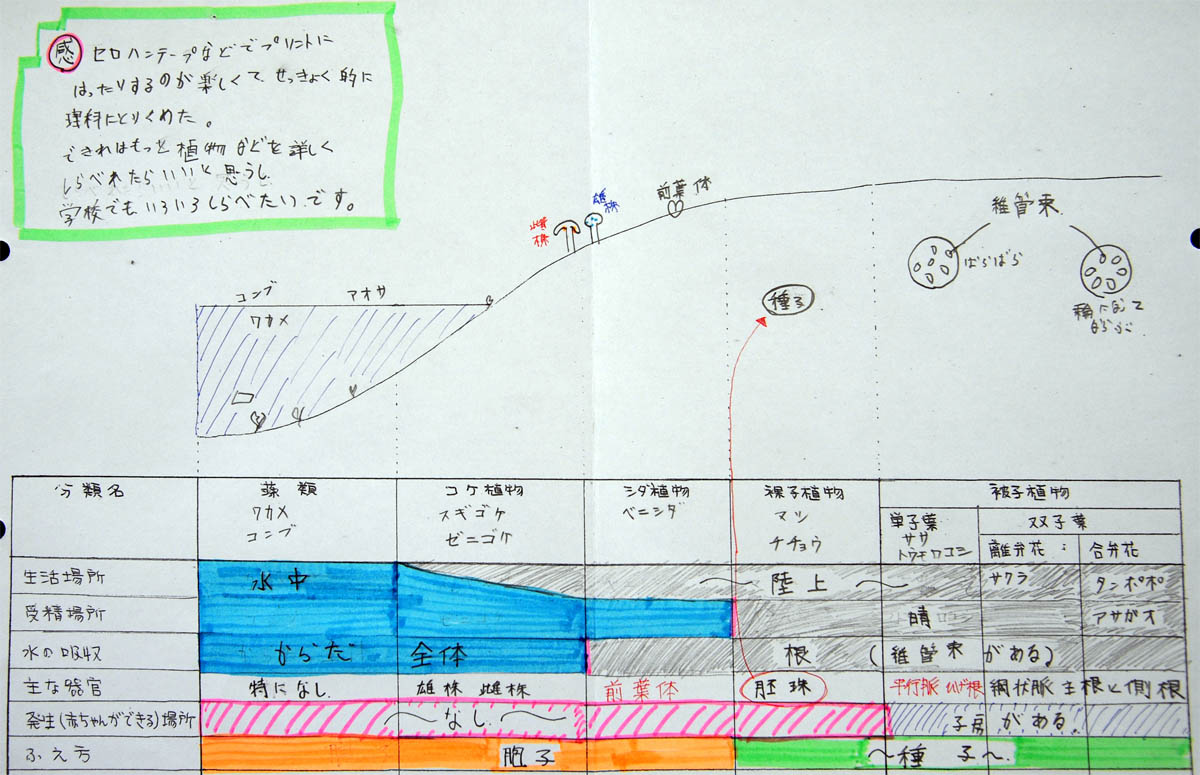 感 セロハンテープなどでプリントに
はったりするのが楽しくて、せっきょく的に
理科にとりくめた。
できればもっと植物などを詳しく
しらべれたらいいと思うし、
学校でもいろいろしらべたいです。
雌株
雄株
前葉体
稚管束
ばらばら
ならぶ
種子
コンブ アオサ
ワカメ
分類名 藻類 コケ植物 シダ植物 裸子植物 被子植物
ワカメ スギゴケ ベニシダ マツ 単子葉 双子葉
コンブ ゼニゴケ チチョウ ササ トウモロコシ 離弁花 : 合弁花
生活場所 水中 〜 陸上 〜 サクラ タンポポ
受精場所 アサガオ
水の吸収 からだ 全体 根 (稚管束 がある)
主な器官 特になし. 雄株 雌株 前葉体 胚珠 平行脈 ひげ根 網状脈 主根と側根
発生(赤ちゃんができる)場所 〜なし〜 子房がある.
ふえ方 胞子 〜種子〜